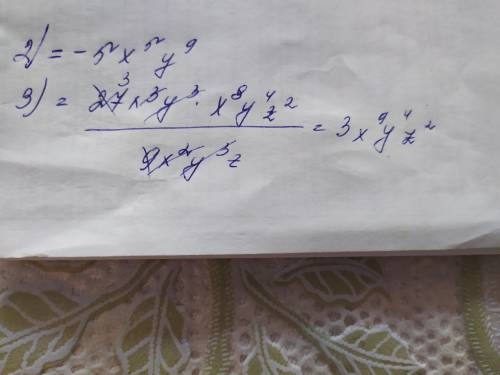 2) = - 5x⁵y⁹
3) = 27³x³y³ · x⁸y⁴z² / 9x²y³z = 3x⁹y⁴z²